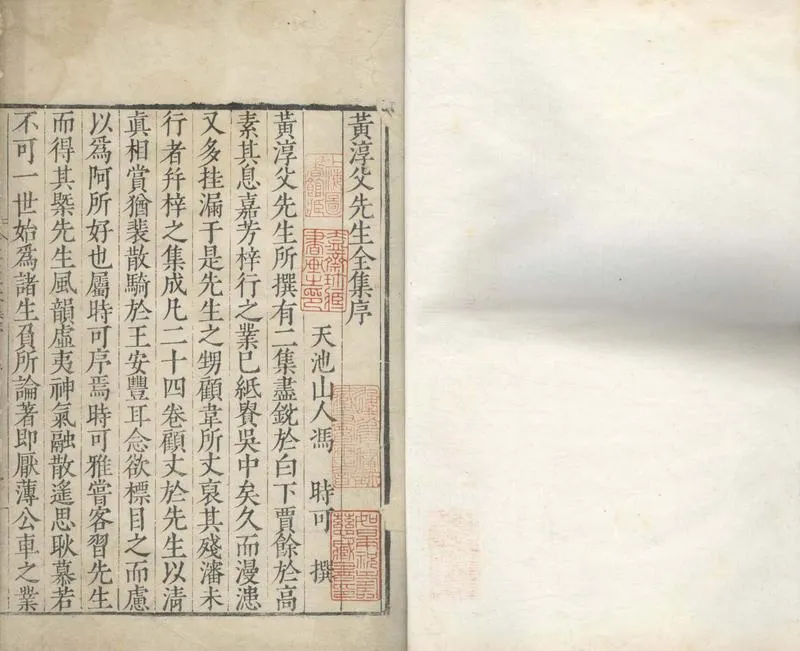 黃淳父先生全集序
天池山人馮時可撰
黃淳父先生所撰有二集盡銳於白下賈餘於高
素其息嘉芳梓行之業已紙貴吳中矣久而漫漶
又多挂漏于是先生之甥顧韋所丈裒其殘瀋未
行者幷梓之集成凡二十四卷顧丈於先生以淸
真相賞猶裴散騎於王安豐耳念欲標目之而慮
以爲阿所好也屬時可序焉時可雅嘗客習先生
而得其槩先生風韻虛夷神氣融散遙思耿慕若
不可一世始爲諸生負所論著即厭薄公車之業